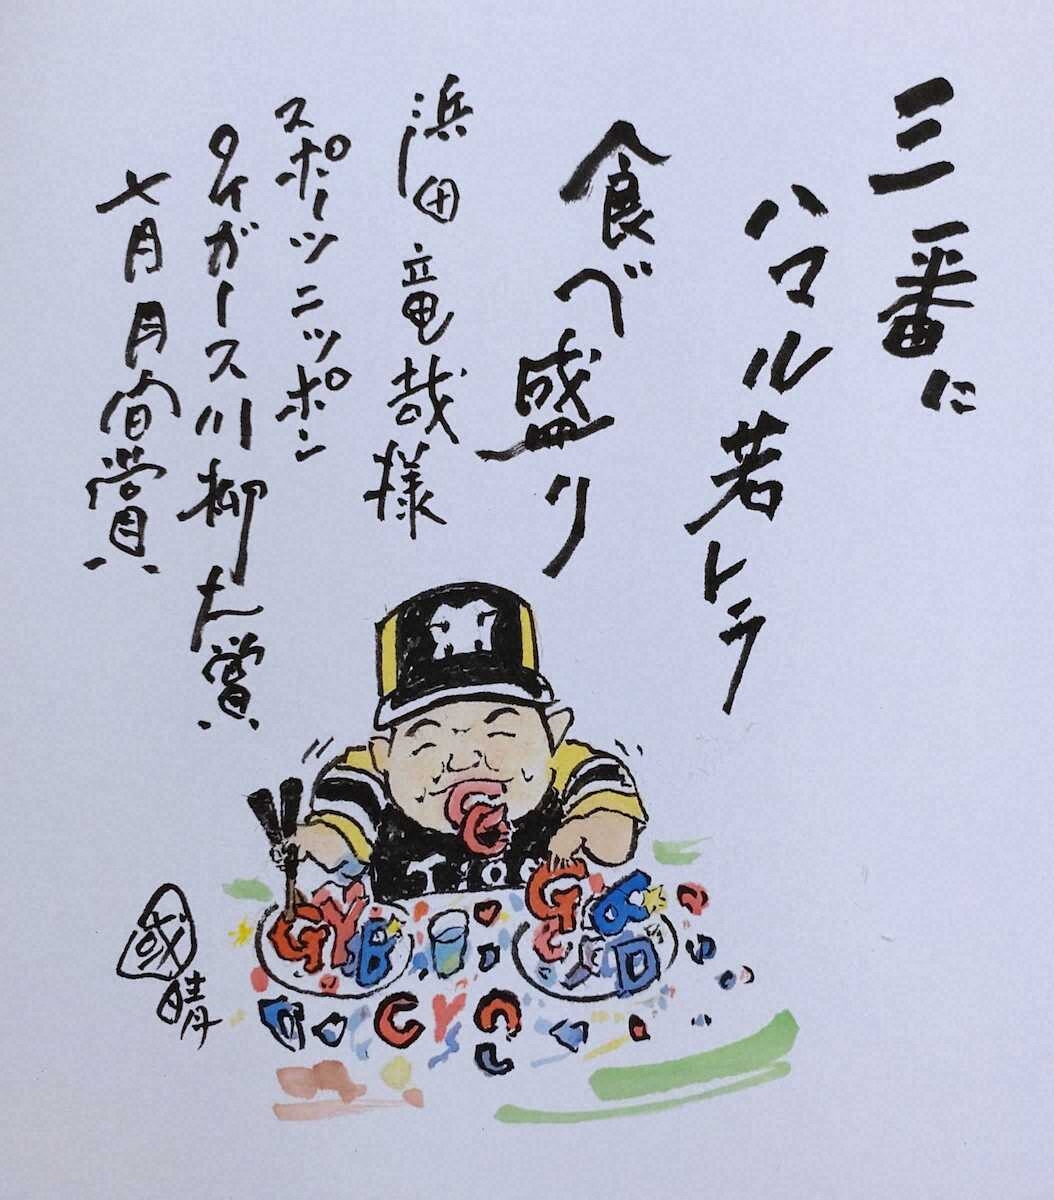 三番に
ハマル若トラ
食べ盛り
浜田竜哉様
スポーツニッポン
タイガース川柳大賞
七月月間賞
國晴
G Y B
G
D
C Y